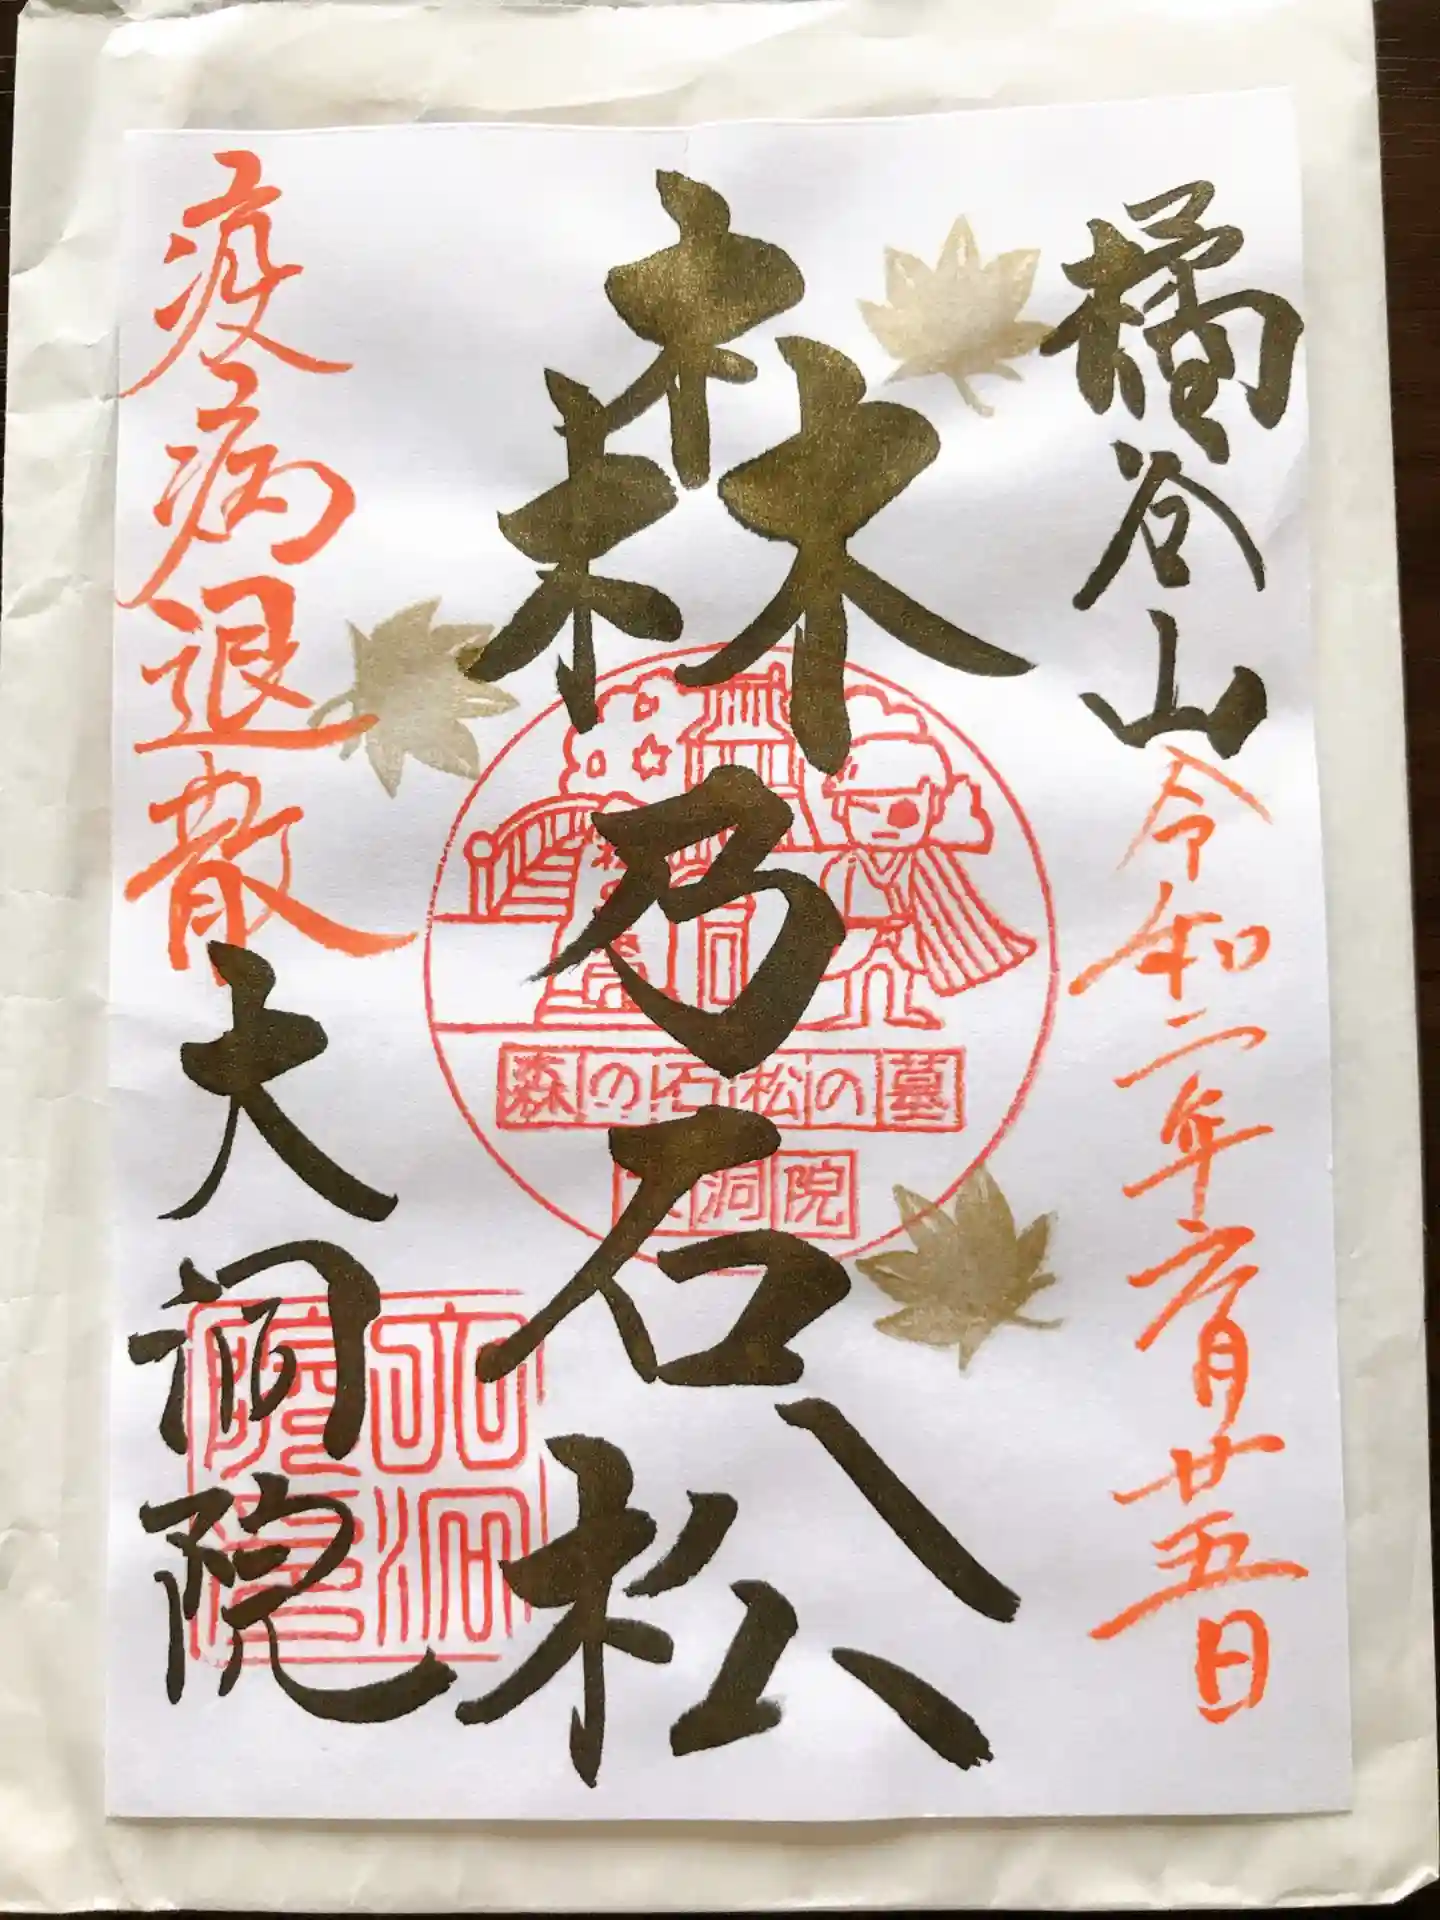 橘谷山
令和二年六月廿五日
森乃石松
森の石松の墓
大洞院
疫病退散
大洞院
大洞院